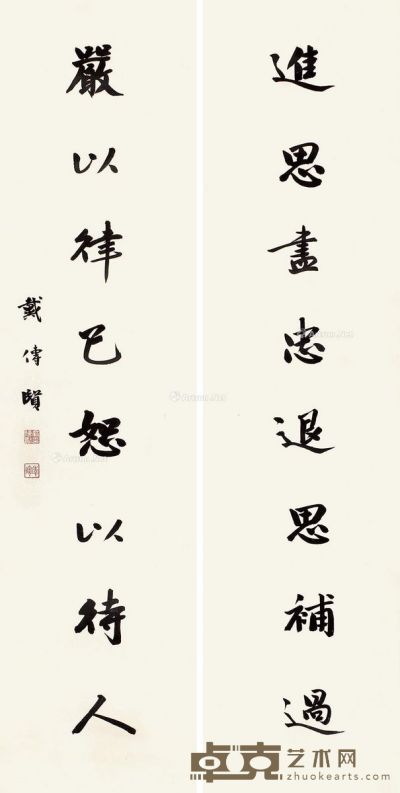 進思盡忠退思補過
嚴以律己恕以待人
戴傳賢
卓克艺术网
zhuokearts.com